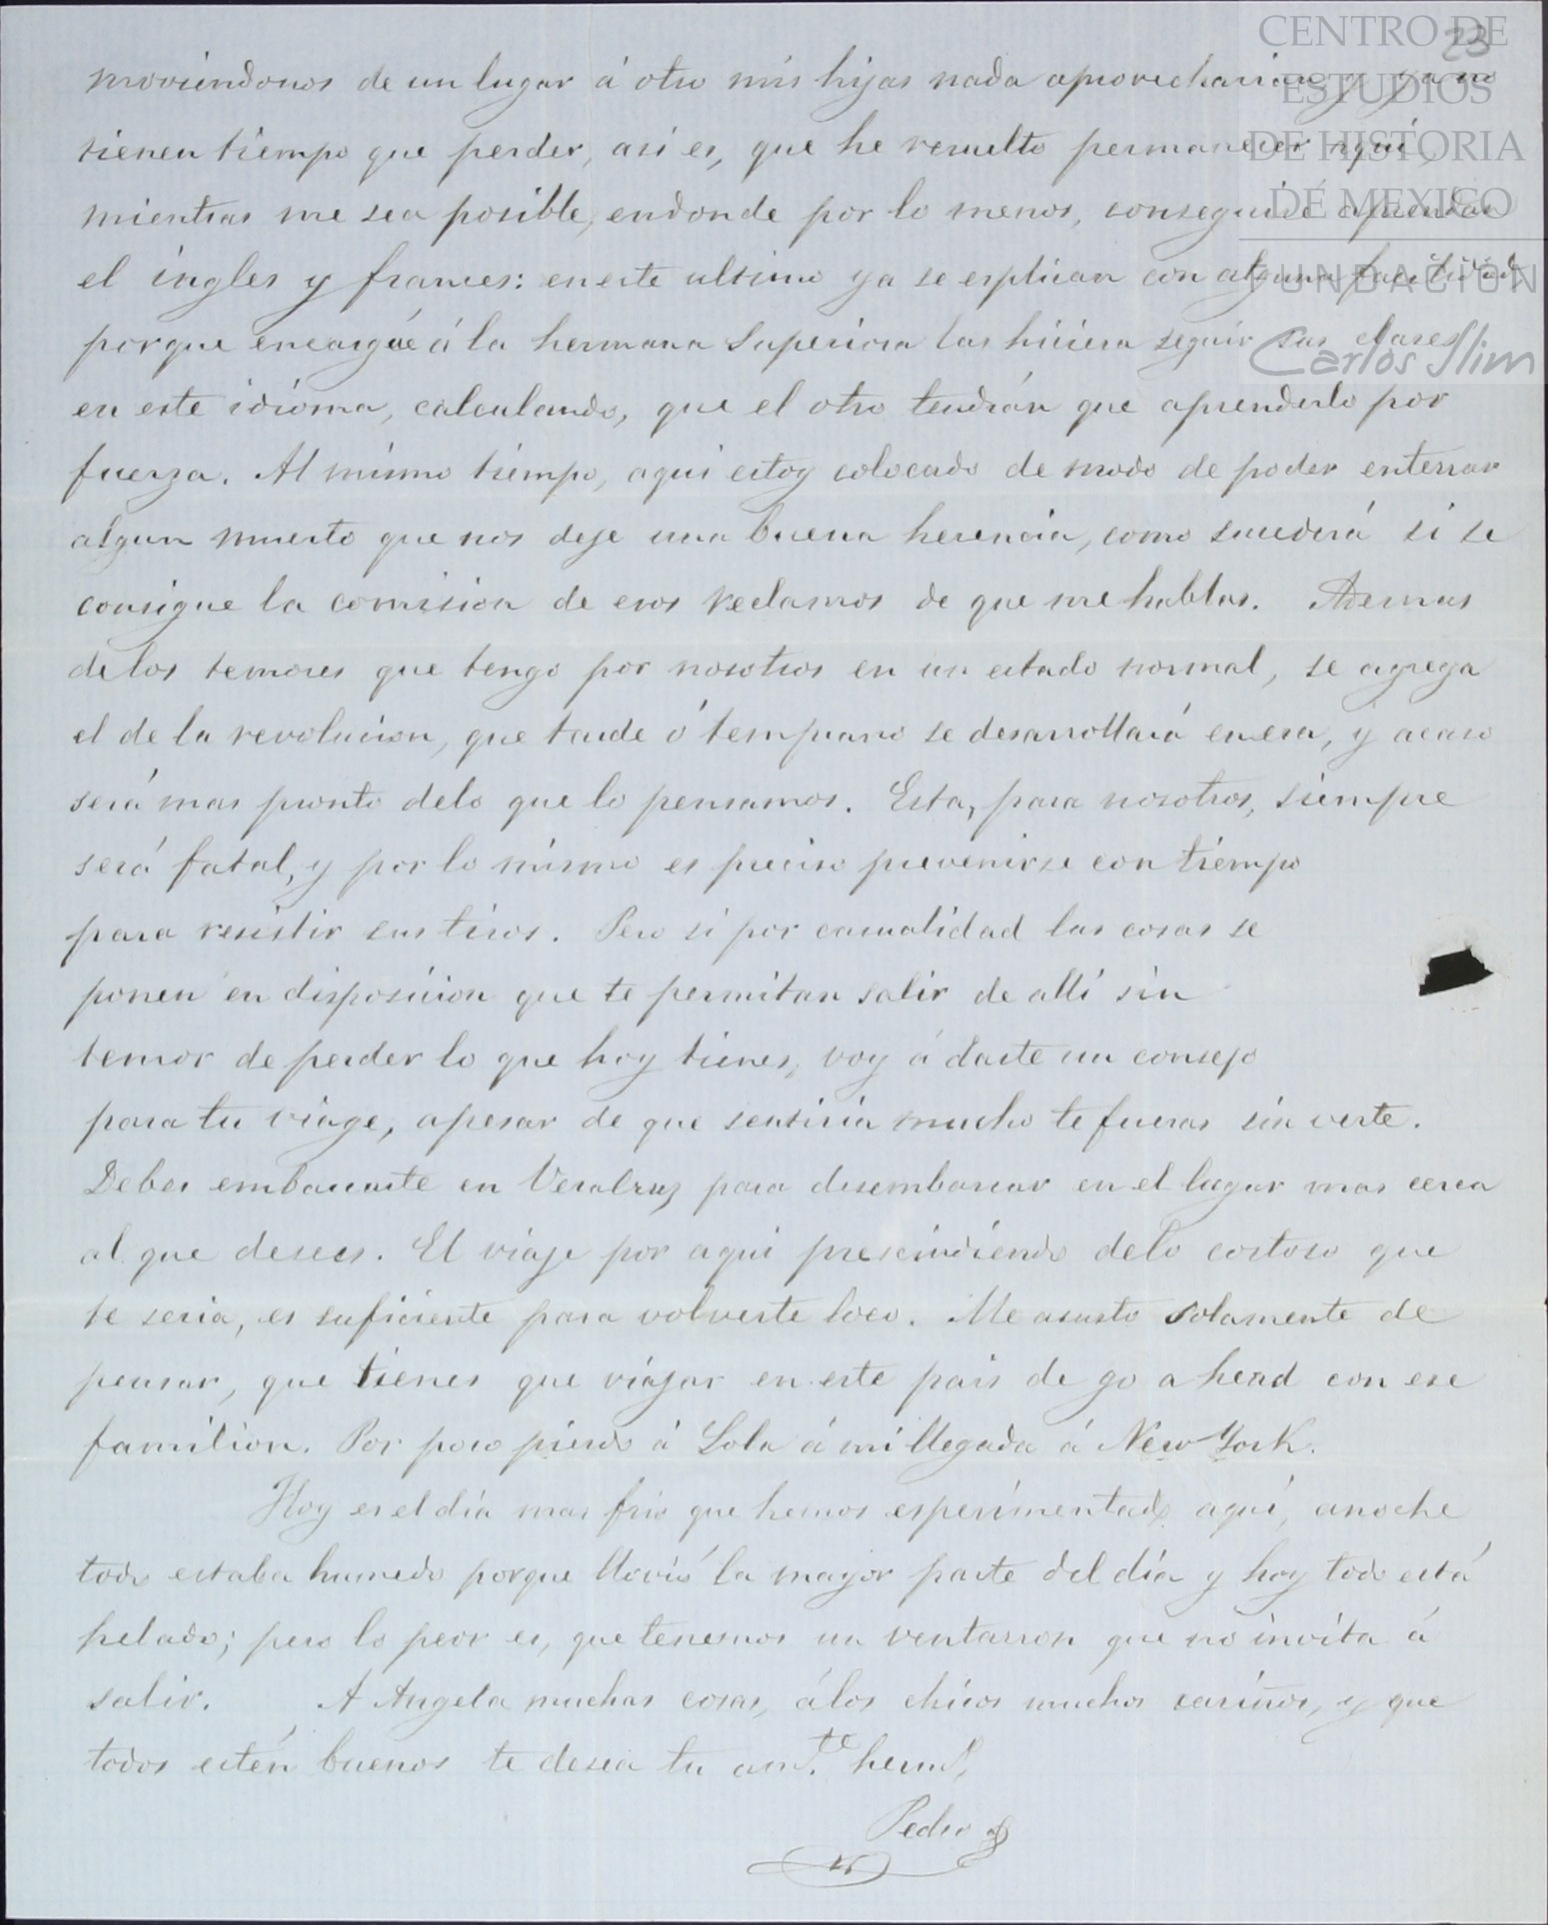 CENTRO DE
ESTUDIOS
DE HISTORIA
DE MEXICO
FUNDACIÓN
Carlos Slim
23
moviendonos de un lugar á otro mis hijas nada aprovecharian, y ya no
tienen tiempo que perder, asi es, que he resuelto permanecer aqui,
mientras me sea posible, endonde por lo menos, conseguiré aprendan
el ingles y frances: en este ultimo ya se esplican con alguna facilidad,
porque encargué á la hermana Superiora las hiciera seguir sus clases
en este idioma, calculando, que el otro tendrán que aprenderlo por
fuerza. Al mismo tiempo, aqui estoy colocado de modo de poder enterrar
algun muerto que nos deje una buena herencia, como sucederá si se
consigue la comision de esos reclamos de que me hablas. Ademas
delos temores que tengo por nosotros en un estado normal, se agrega
el de la revolucion, que tarde ó temprano se desarrollará en esa, y acaso
será mas pronto delo que lo pensamos. Esta, para nosotros, siempre
será fatal, y por lo mismo es preciso prevenirse con tiempo
para resistir sus tiros. Pero si por casualidad las cosas se
ponen en disposicion que te permitan salir de allí sin
temor de perder lo que hoy tienes, voy á darte un consejo
para tu viage, apesar de que sentiria mucho te fueras sin verte.
Debes embarcarte en Veracruz para desembarcar en el lugar mas cerca
al que desees. El viaje por aqui prescindiendo delo costoso que
te seria, es suficiente para volverte loco. Me asusto solamente de
pensar, que tienes que viajar en este pais de go a head con ese
familion. Por poco pierdo á Lola á mi llegada á New York.
Hoy es el día mas frio que hemos esperimentado aquí, anoche
todo estaba humedo porque llovió la mayor parte del día y hoy todo está
helado; pero lo peor es, que tenemos un ventarron que no invita á
salir. A Angela muchas cosas, álos chicos muchos cariños, y que
todos estén buenos te desea tu am.te herm.º
Pedro